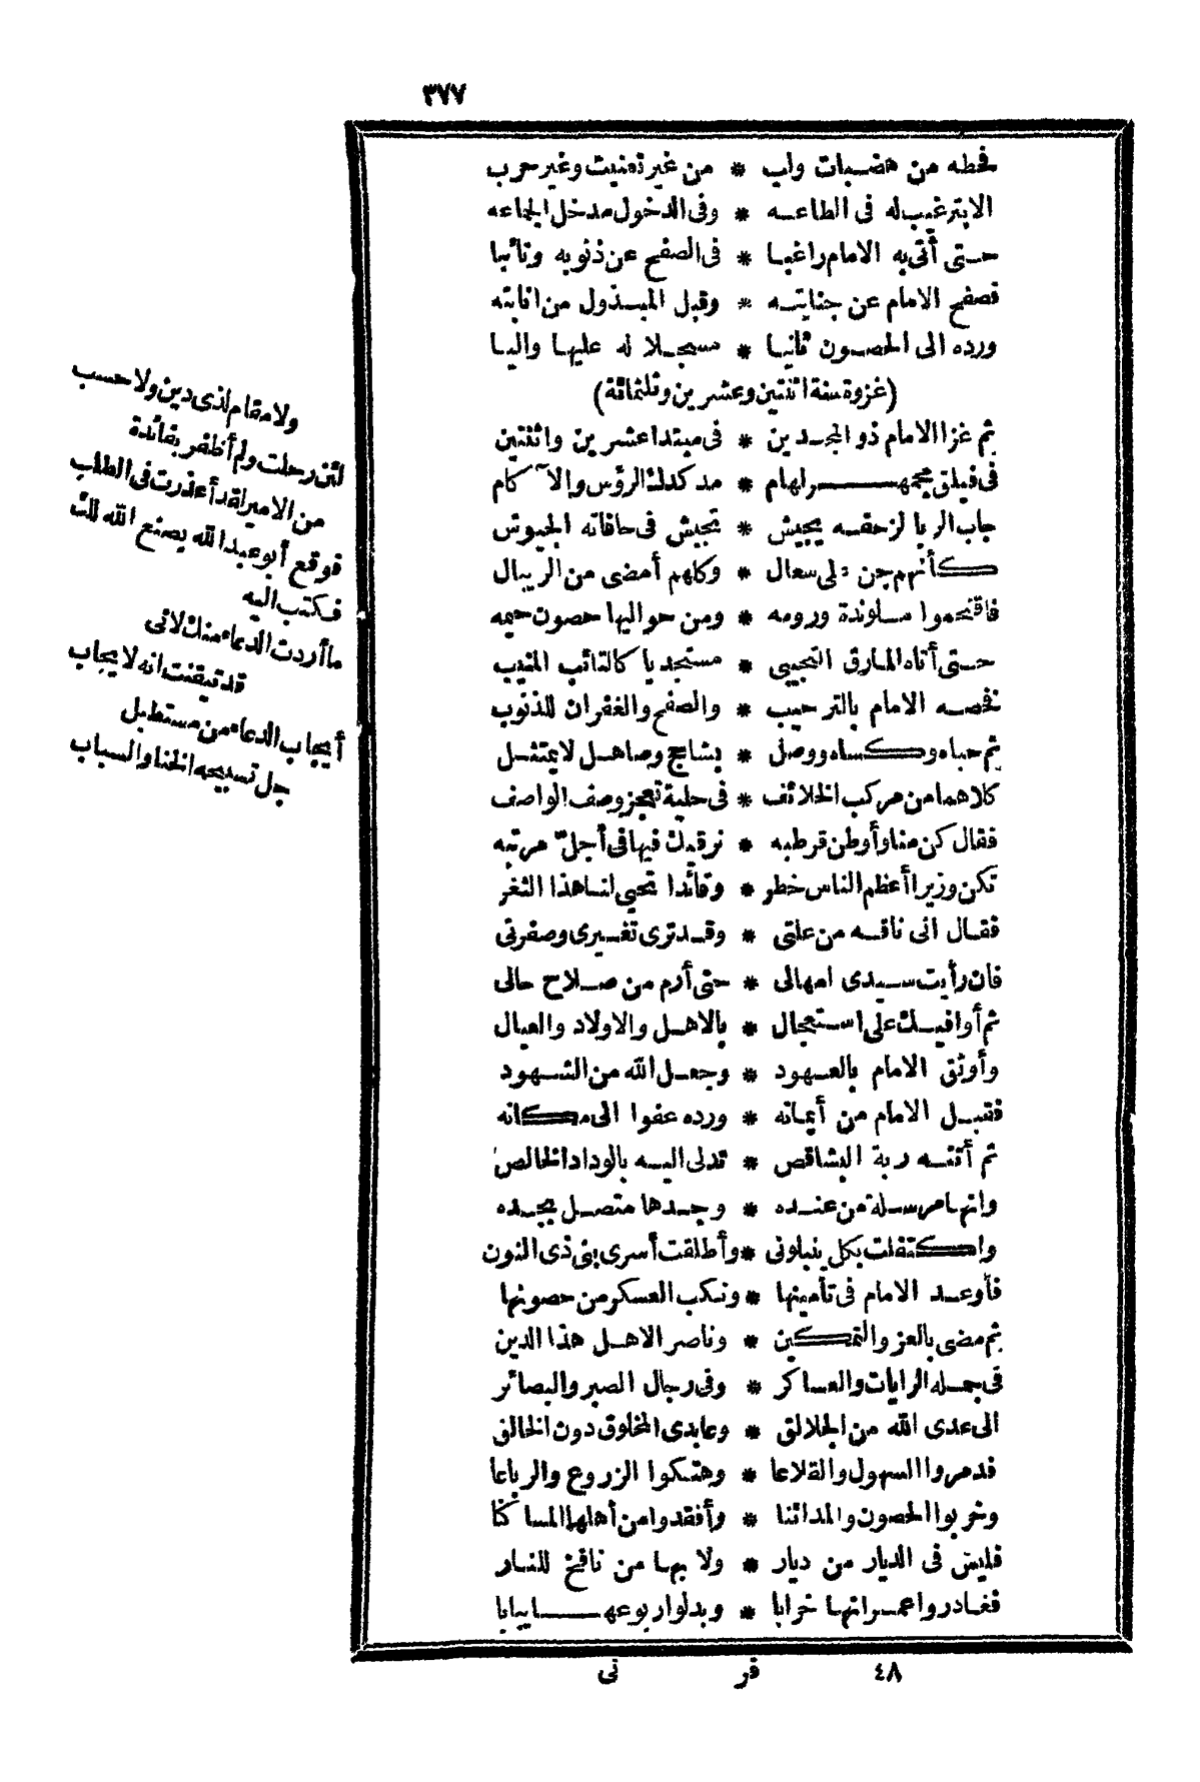 ٣٧٧
فحطه من هضبات ولب * من غير تعنيت وغير حرب
الا بترغيب له فى الطاعه * وفى الدخول مدخل الجماعه
حتى أتى به الامام راغبا * فى الصفح عن ذنوبه وتائبا
فصفح الامام عن جنايته * وقبل المبذول من انابته
ورده الى الحصون ثانيا * مسجلا له عليها واليا
(غزوة سنة اثنتين وعشرين وثلثمائة)
ثم غزا الامام ذو المجدين * فى مبتدا عشرين واثنتين
فى فيلق مجمهر لهام * مدكدك الرؤس والآكام
جاب الربا لزحفه يجيش * تجيش فى حافاته الجيوش
كأنهم جن على سعال * وكلهم أمضى من الريبال
فاقتحموا سلوندة ورومه * ومن حواليها حصون حيمه
حتى أتاه المارق التجيبى * مستجديا كالتائب المنيب
فخصه الامام بالترحيب * والصفح والغفران للذنوب
ثم حباه وكساه ووصل * بشاحج وصاهل لا يمتثل
كلاهما من مركب الخلائف * فى حلية تعجز وصف الواصف
فقال كن منا وأوطن قرطبه * نرقيك فيها فى أجلّ مرتبه
تكن وزيرا أعظم الناس خطر * وقائدا تجبى لنا هذا الثغر
فقال انى ناقه من علتى * وقد ترى تغيرى وصفرتى
فان رأيت سيدى امهالى * حتى أرم من صلاح حالى
ثم أوافيك على استعجال * بالاهل والاولاد والعيال
وأوثق الامام بالعهود * وجعل الله من الشهود
فقبل الامام من أيمانه * ورده عفوا الى مكانه
ثم أتته ربة البشاقص * تدلى اليه بالوداد الخالص
وانها مرسلة من عنده * وجدها متصل بجده
واكتفلت بكل بنبلونى * وأطلقت أسرى بنى ذى النون
فأوعد الامام فى تأمينها * ونكب العسكر من حصونها
ثم مضى بالعز والتمكين * وناصر الاهل هذا الدين
فى جملة الرايات والعساكر * وفى رجال الصبر والبصائر
الى عدى الله من الجلالق * وعابدى المخلوق دون الخالق
فدمروا السهول والقلاعا * وهتكوا الزروع والرباعا
وخربوا الحصون والمدائنا * وأفقدوا من أهلها المساكنا
فليس فى الديار من ديار * ولا بها من نافخ للنار
فغادروا عمرانها خرابا * وبدلوا ربوعها يبابا
ولا مقام لذى دين ولا حسب
لئن رحلت ولم أظفر بفائدة
من الامير لقد أعذرت فى الطلب
فوقع أبو عبد الله يصنع الله لك
فكتب اليه
ما أردت الدعاء منك لانى
قد تيقنت انه لا يجاب
أيجاب الدعاء من مستطيل
جل تسبيحه الخنا والسباب
٤٨ فر نى